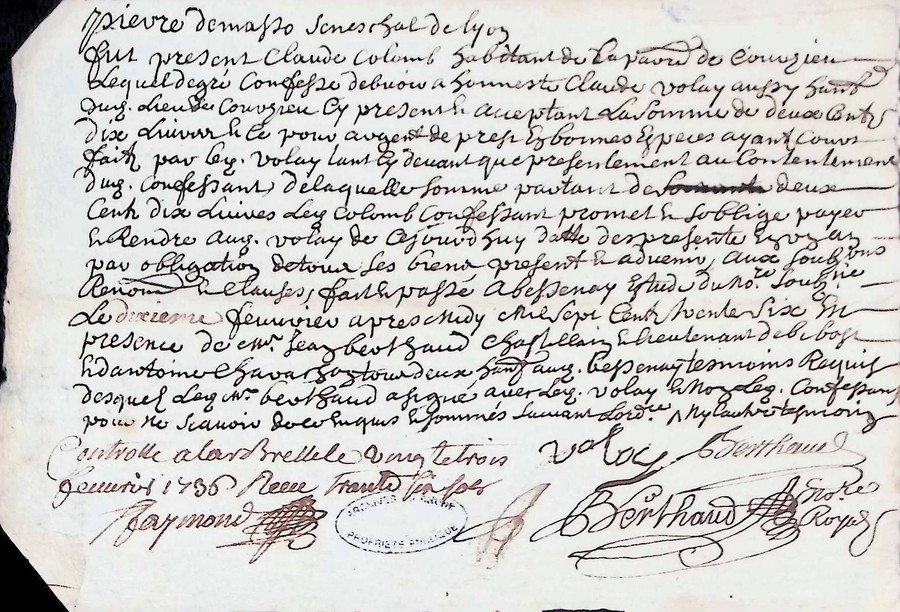 pierre demasso Seneschal de lyon
fut present Claude Colomb habitant de la parre de Couvzieu
Lequel de gré Confesse debvoir a honneste Claude volay aussy hant
dug. Lieu de Couvzieu Cy present et acceptant La Somme de deux Centz
dix Livres et Ce pour argent de prest En bonnes Especes ayant Cours
fait par leg. volay tant Cy devant que presentement au Contentement
dug. Confessant, de laquelle Somme partant de deux
Centz dix Livres Leg Colomb Confessant promet et soblige payer
et Rendre aug. volay de Cejourdhuy datte des presente En un an
par obligation de tous Ses biens present et advenir, aux soubz.ons
Renon.on et Clauses, fait et passé a bessenay Estude du No.re soubz.né
Le dixieme feuvrier apres midy Mil Sept Cent trente Six En
presence de m.re Jean berthaud Chastellain et lieutenant de bibost
et dantoine Chavachon tous deux hant aug. bessenay tesmoins Requis
desquel Leg m.re berthaud a signé avec Leg. volay et Non Leg. Confessant
pour ne scavoir de ce enquis et sommés suivant Lord.ce ny lautre tesmoin
Controllé a larbrelle le vingt trois
feuvrier 1736 Receu trante six sols
Raymond
volay
Berthaud
Berthaud
no.re Royal
ARCHIVES DU RHONE
PROPRIETE PUBLIQUE